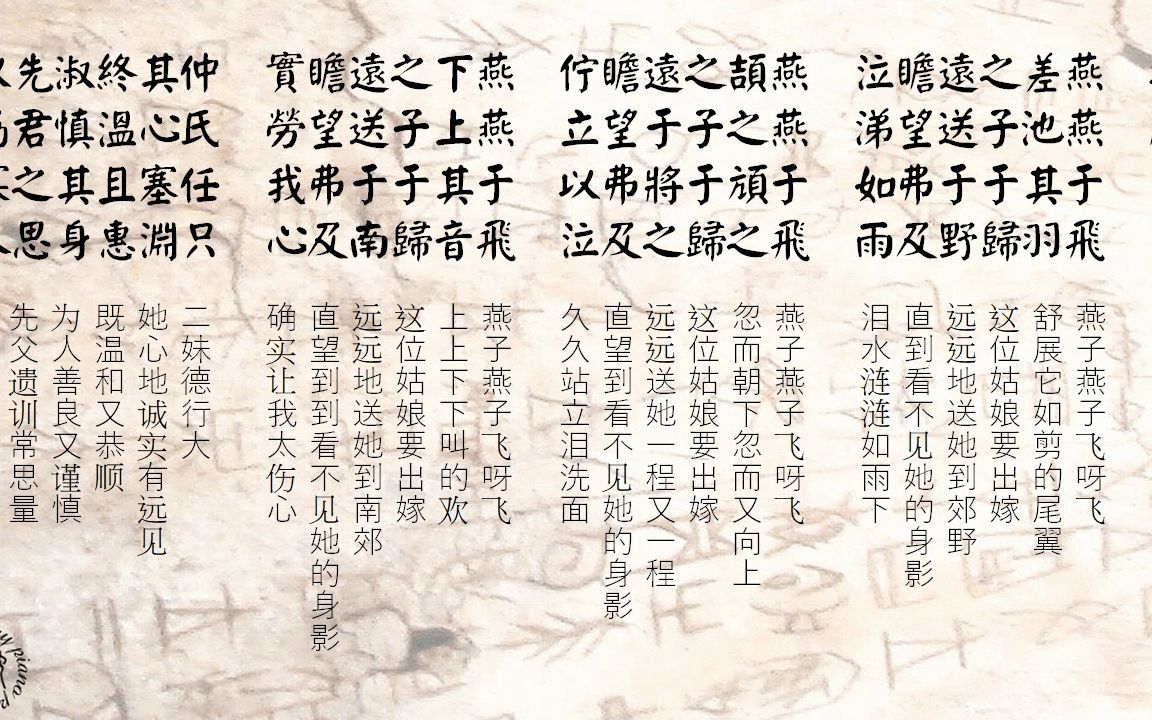 燕燕于飛
差池其羽
之子于歸
遠送于野
瞻望弗及
泣涕如雨
燕子燕子飞呀飞
舒展它如剪的尾翼
这位姑娘要出嫁
远远地送她到郊野
直到看不见她的身影
泪水涟涟如雨下
燕燕于飛
頡之頏之
之子于歸
遠于將之
瞻望弗及
佇立以泣
燕子燕子飞呀飞
忽而朝下忽而又向上
这位姑娘要出嫁
远远送她一程又一程
直望到看不见她的身影
久久站立泪洗面
燕燕于飛
下上其音
之子于歸
遠送于南
瞻望弗及
實勞我心
燕子燕子飞呀飞
上上下下叫的欢
这位姑娘要出嫁
远远地送她到南郊
直望到到看不见她的身影
确实让我太伤心
仲氏任只
其心塞淵
終溫且惠
淑慎其身
先君之思
二妹德行大
她心地诚实有远见
既温和又恭顺
为人善良又谨慎
先父遗训常思量
piano